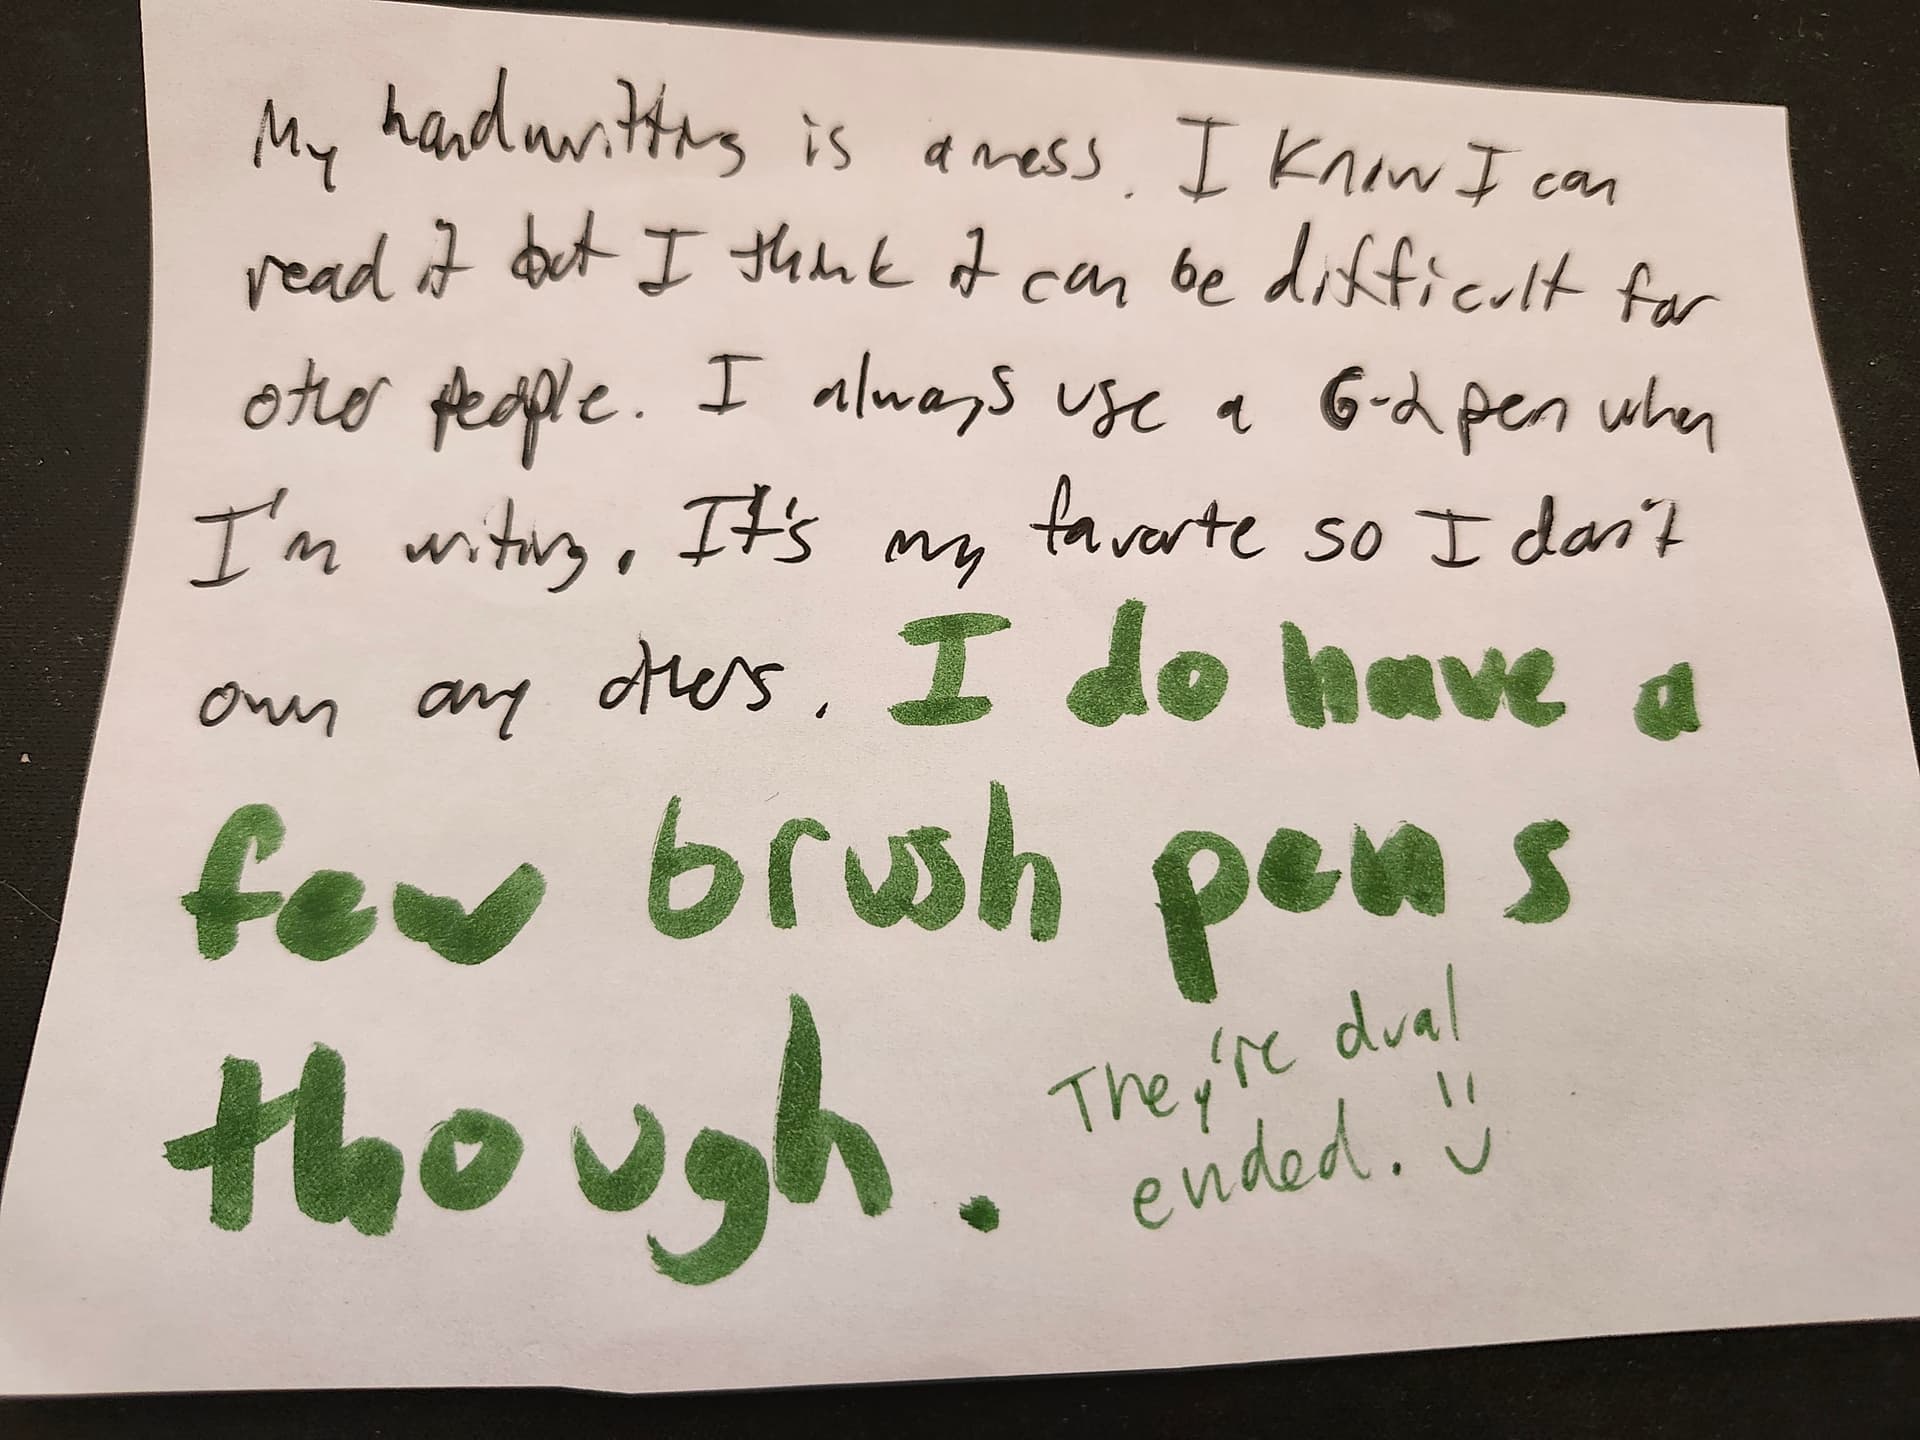 My handwritting is a mess. I know I can
read it but I think it can be difficult for
other people. I always use a G-2 pen when
I'm writing. It's my favorite so I don't
own any others. I do have a
few brush pens
though.
They're dual
ended. :)